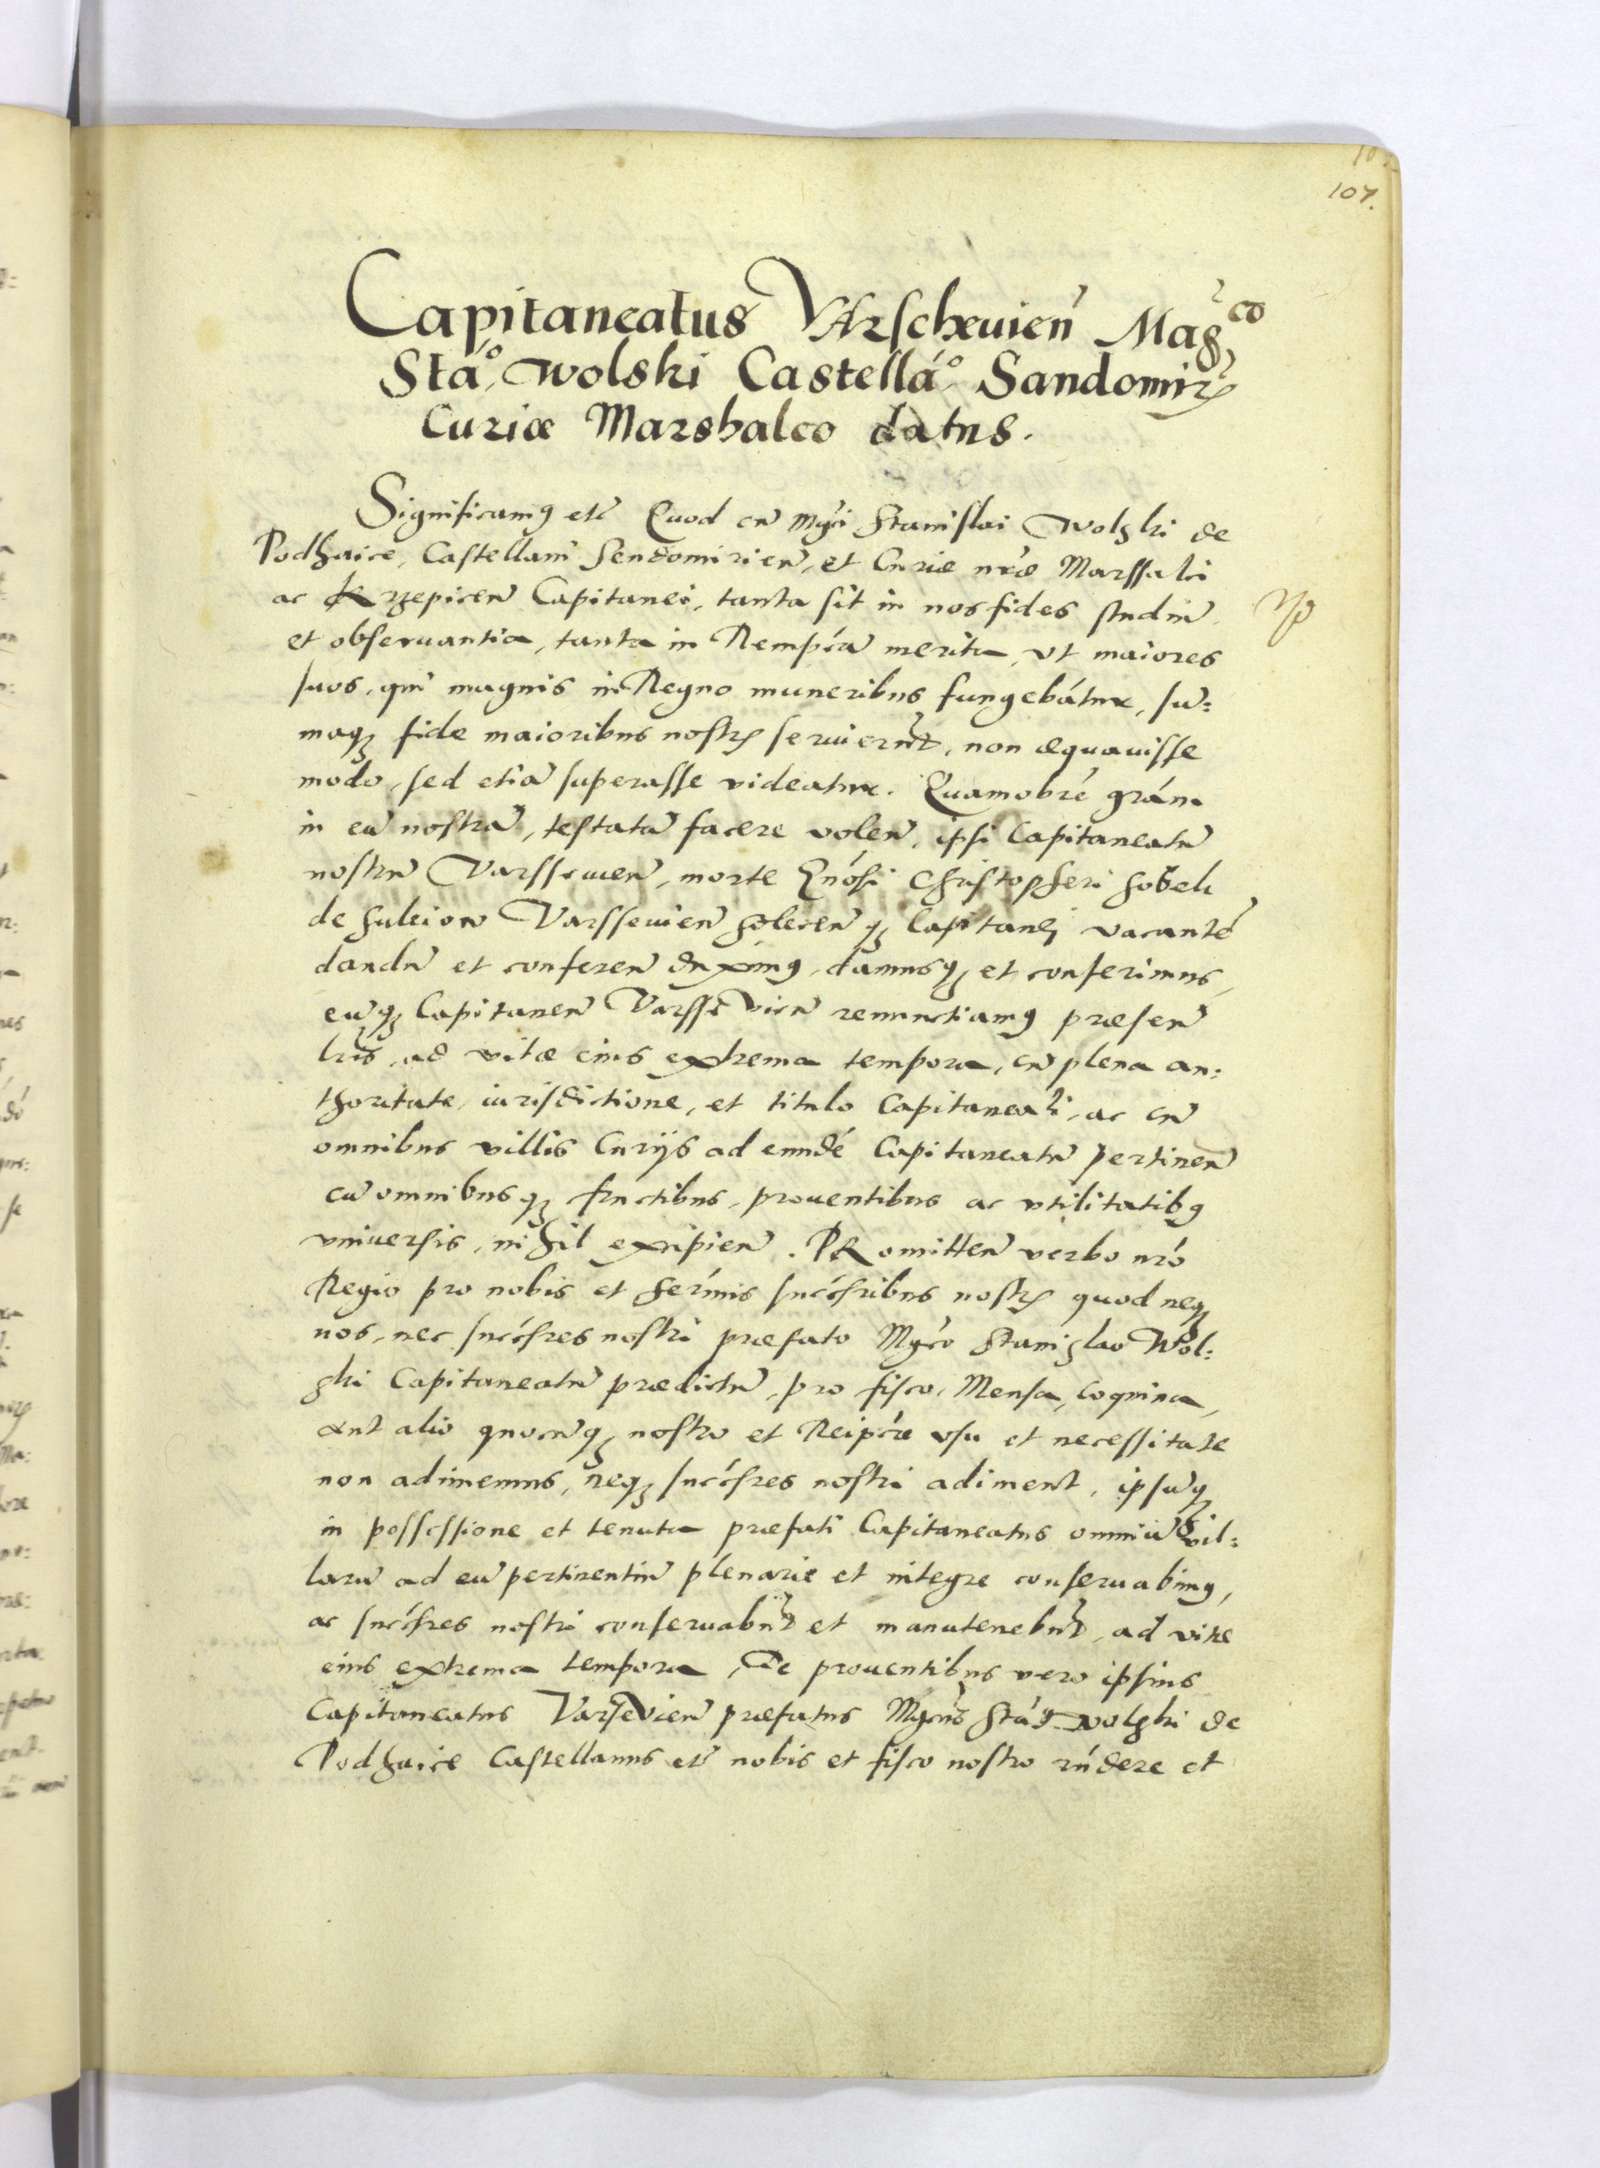 107.
Capitaneatus Varschevień Magco
Stao. Wolski Castellao. Sandomirz
Curiæ Marshalco datus.
Significamus etc Quod cū Mgci Stanislai Wolski de
Podhaice, Castellani Sendomirień, et Curiæ nræ Marssalci
ac Krzepiceń Capitanei, tanta sit in nos fides studiū
et obseruantia, tanta in Rempcā merita, vt maiores
suos, qui magnis in Regno muneribus fungebātur, sū=
maq3 fide maioribus nostris seruierūt, non æquauisse
modo, sed etiā superasse videatur. Quamobrē grām
in eū nostrā, testatā facere voleń, ipsi Capitaneatū
nostrū Varsseuień, morte Gnosi Christopheri
de Varssevień q3 Capitanei vacantē
dandū et confereń duximus, damusq3 et conferimus,
eūq3 Capitaneū Varssevień renunctiamus præseń
lris, ad vitæ eius extrema tempora, cū plena au=
thoritate, iurisdictione, et titulo Capitaneali, ac cū
omnibus villis Curijs ad eundē Capitaneatū pertineń
cū omnibusq3 fructibus, prouentibus ac vtilitatibus
vniuersis, nihil excipień. PRomitteń verbo nro
Regio pro nobis et Serimis succribus nostris quod neq3
nos, nec succres nostri præfato Mgco Stanislao Wol=
ski Capitaneatū prædictū, pro fisco, Mensa, Coquina,
aut alio quocūq3 nostro et Reipcæ vsu et necessitate
non adimemus, neq3 succres nostri adiment, ipsūq3
in possessione et tenuta præfati Capitaneatus omniū vil=
larū ad eū pertinentiū plenarie et integre conseruabimus,
ac succres nostri conseruabūt et manutenebūt, ad vitæ
eius extrema tempora, De prouentibus vero ipsius
Capitaneatus Varsevień præfatus Mgcus Staus Wolski de
Podhaice Castellanus etc nobis et fisco nostro rńdere et